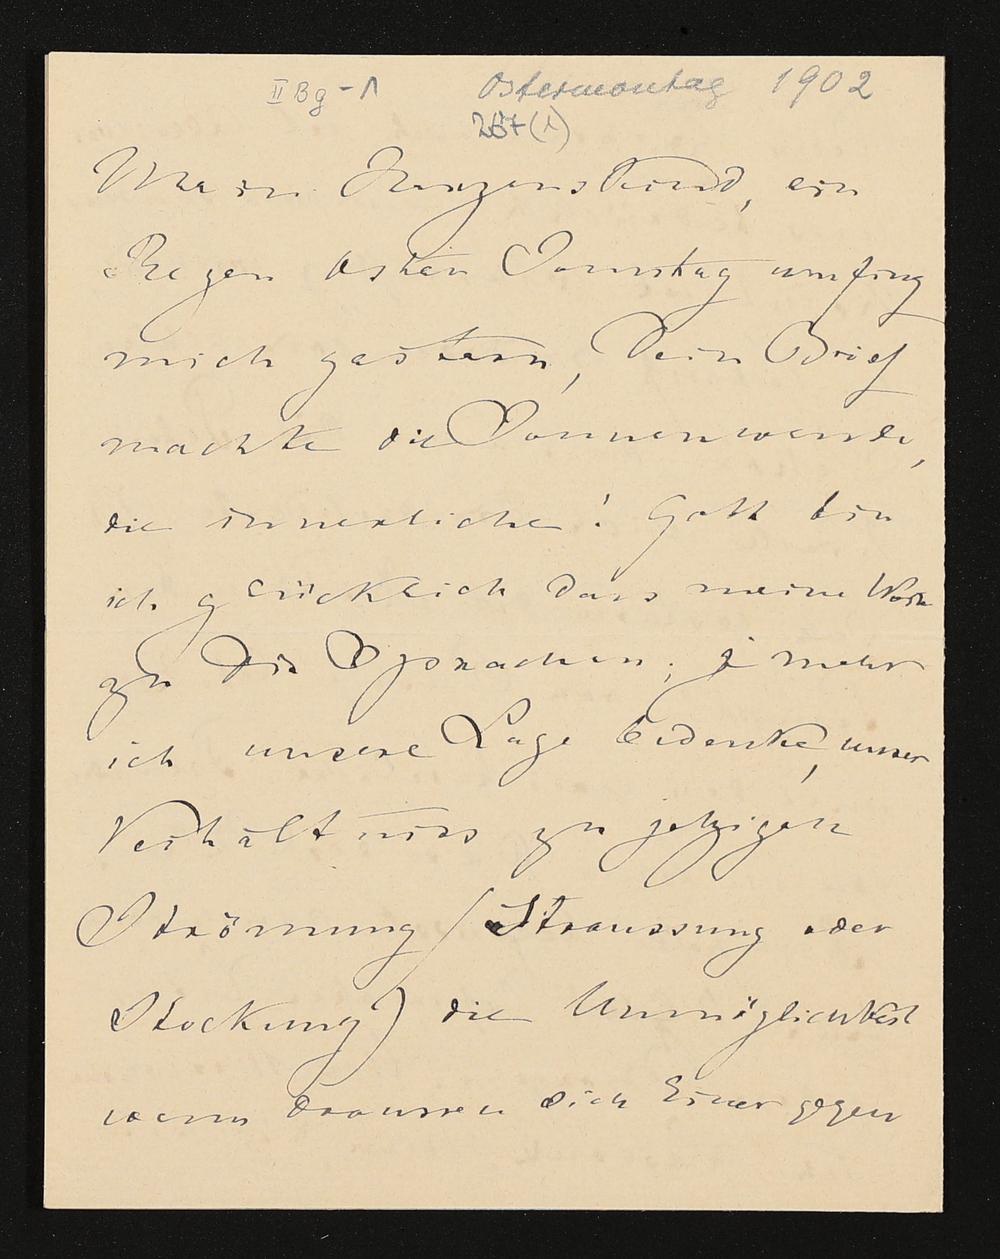 II Bg-1 Ostermontag 1902
267(1)
Mein Herzenskind, ein
Regen Oster Sonntag umfing
mich gestern, Dein Brief
machte die Sonnenwende,
die innerliche! Gott bin
ich glücklich dass meine Worte
zu Dir sprachen; je mehr
ich unsere Lage bedenke, unser
Verhältniss zu jetzigen
Strömung (Straussung oder
Stockung) die Unmöglichkeit
wenn draussen sich Einer gegen